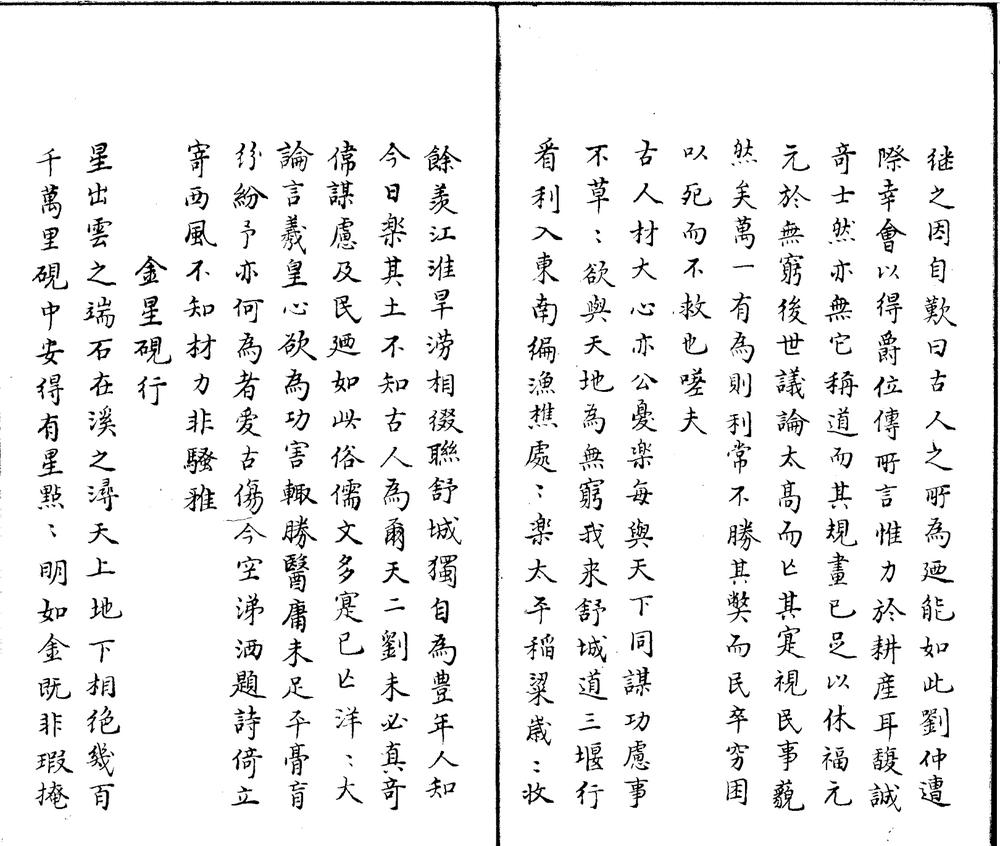 继之因自歎曰古人之所為廼能如此劉仲遭
際幸會以得爵位傳所言惟力於耕産耳馥誠
竒士然亦無它稱道而其規畫已足以休福元
元於無窮後世議論太髙而亡其寔視民事藐
然矣萬一有為則利常不勝其獘而民卒穷困
以死而不救也嗟夫
古人材大心亦公憂楽每與天下同謀功慮事
不草〻欲與天地為無窮我来舒城道三堰行
看利入東南編漁樵處〻楽太平稲粱歳〻收
餘羡江淮旱澇相綴聯舒城獨自為豊年人知
今日楽其土不知古人為爾天二劉未必真竒
偉謀慮及民廼如此俗儒文多寔已亡洋〻大
論言羲皇心欲為功害輙勝醫庸未足平膏肓
紛紛予亦何為者愛古傷今空涕洒題詩倚立
寄西風不知材力非騷雅
金星硯行
星出雲之端石在溪之潯天上地下相絶幾百
千萬里硯中安得有星㸃〻明如金既非瑕掩